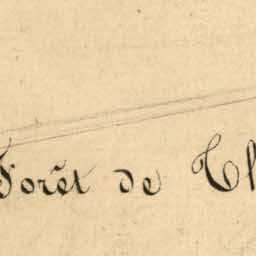 Forêt de Ch